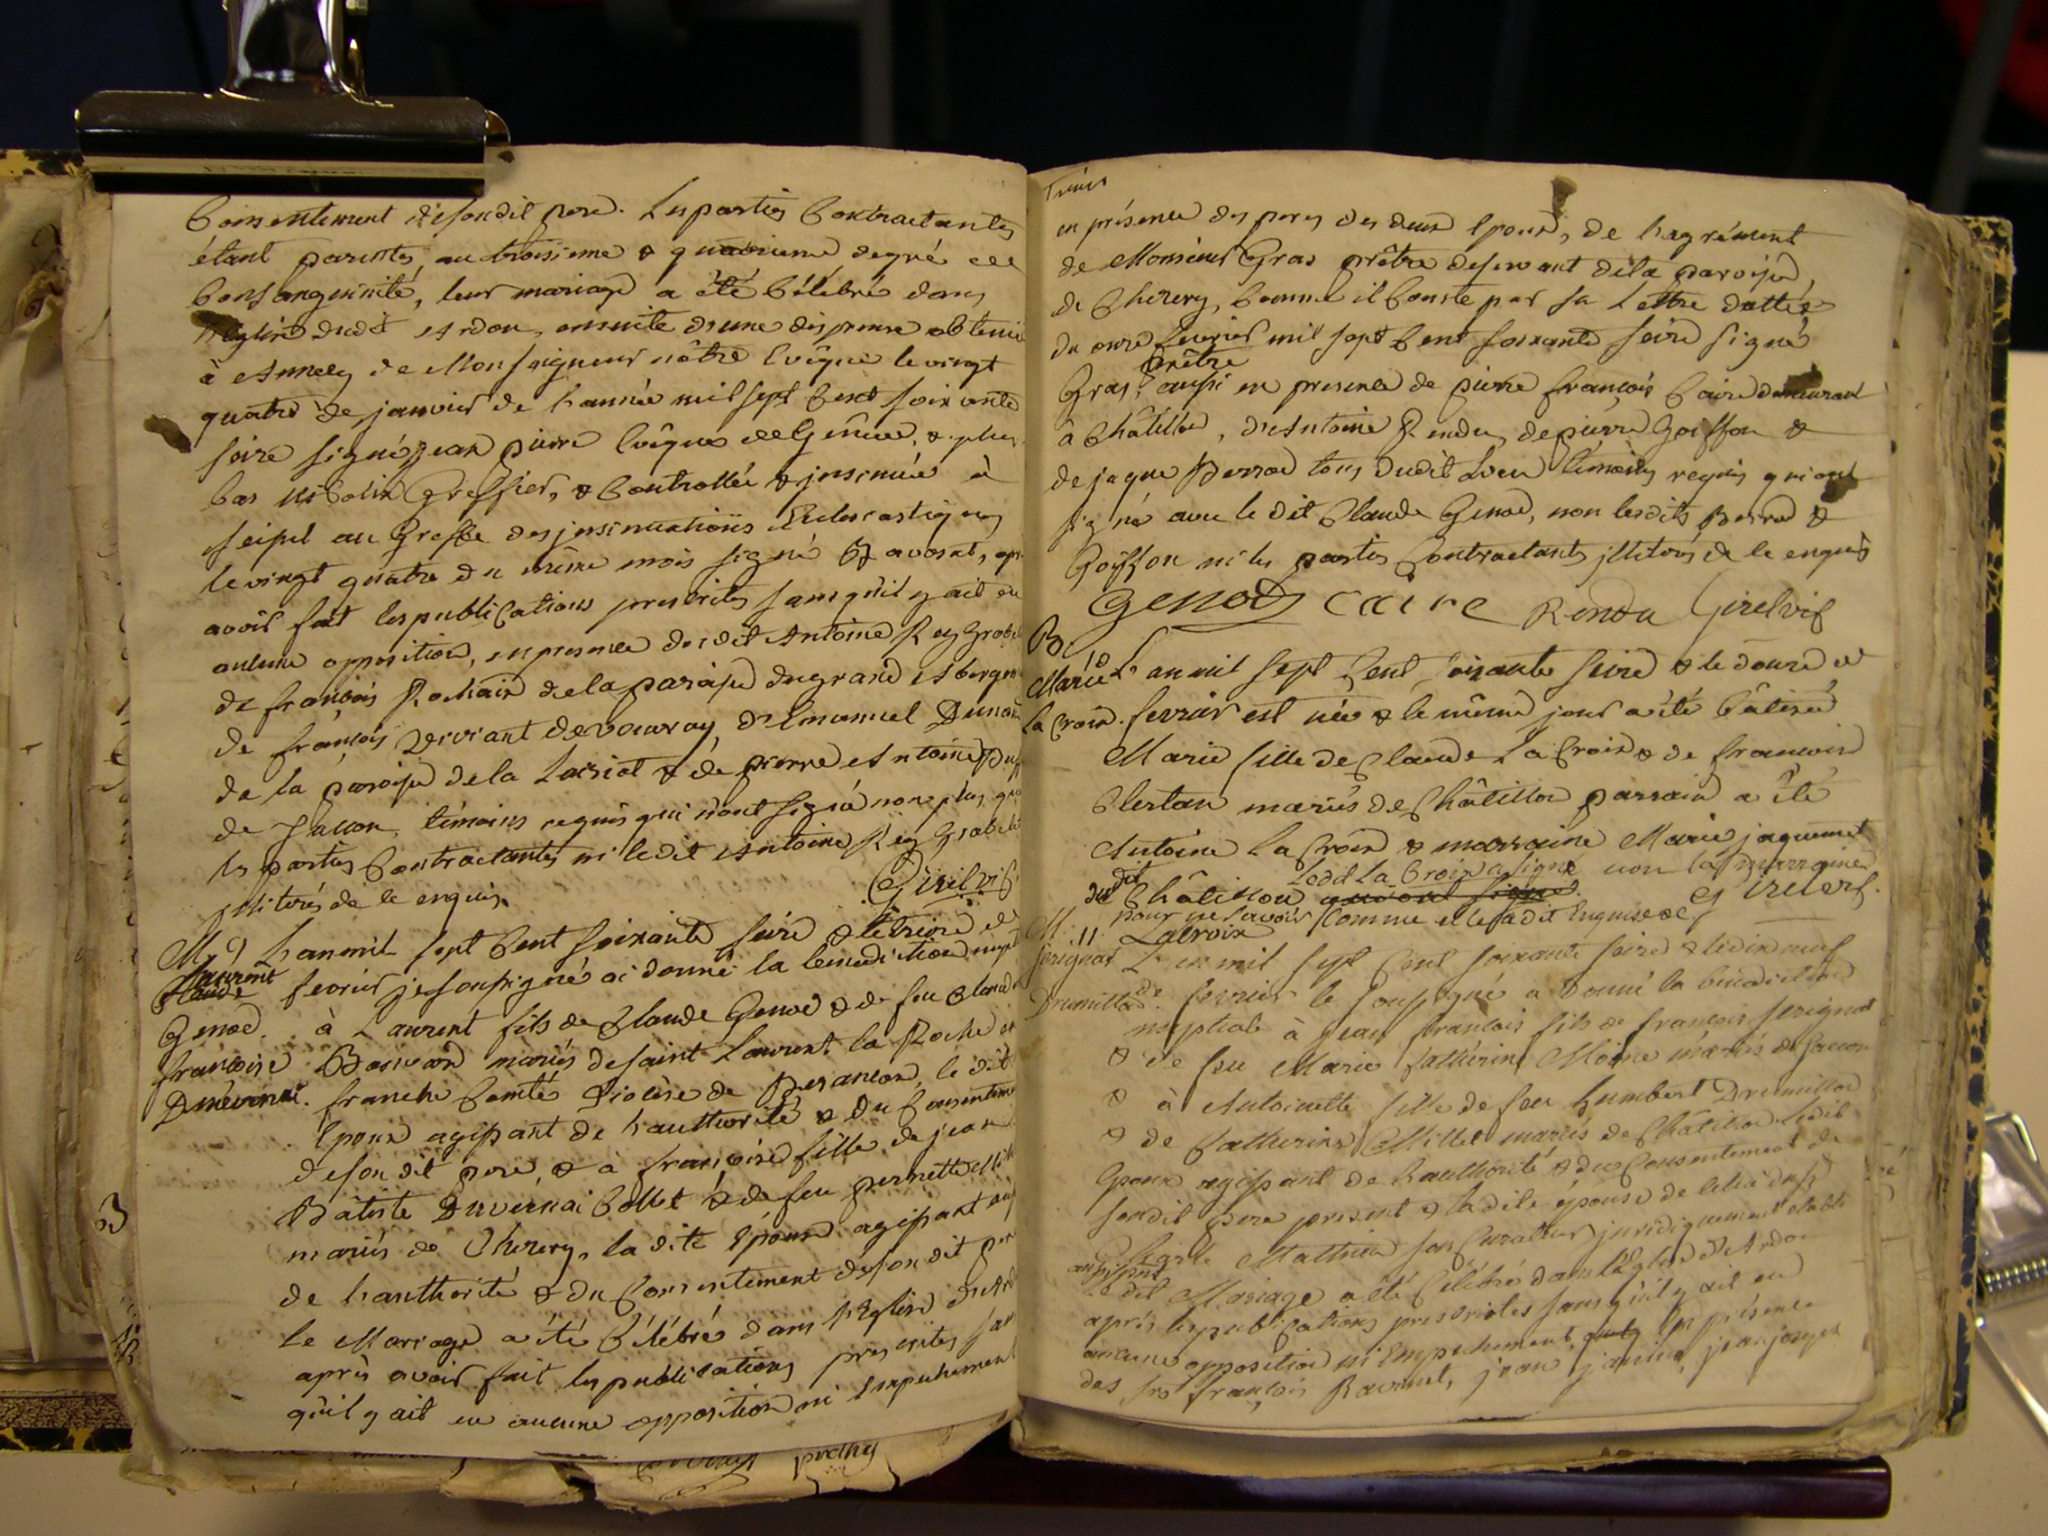 Consentement de son dit pere. Les parties Contractantes
étant parentes, au troisieme & quatrieme degré de
Consanguinité, leur mariage a été Célebré dans
l'Eglise dudit Ardon, ensuite d'une dispense obtenue
à Annecy de Monseigneur nôtre Evêque le vingt
quatre de janvier de l'année mil sept Cent soixante
seize signé jean pierre Evêque de Genêve, & plus
bas Greffier, & Controllée & insinuée à
Seissel au Greffe des insinuations Ecclesiastiques
le vingt quatre du même mois signé avocat,
avoir fait les publications prescrites sans qu'il y ait eu
aucune opposition, en presence dudit Antoine Rey
de françois Rochaix de la paroisse du grand Abergem
de françois Vivian de vouvray, d'Emanuel
de la paroisse de la & de pierre Antoine
de témoins requis qui n'ont signé non plus que
les parties Contractantes ni ledit Antoine Rey
illiterés de ce enquis.
Girelvif
M. L'an mil sept Cent soixante seize & le treize de
Laurent
Claude fevrier je soussigné ai donné la benediction nupt
Genod. à Laurent fils de Claude Genod & de feu Claud
françoise mariés de saint Laurent la Roche en
Duvernai. franche Comté Diocèse de Besancon, le dit
Epoux agissant de l'authorité & du Consentem
de son dit pere, & à françoise fille de jean
Bâtiste Duvernai Collet & de feu pernette
mariés de Cherery, la dite Epouse agissant
de l'authorité & du Consentement de son dit per
le Mariage a été Célébré dans l'Eglise d'Ard
après avoir fait les publications prescrites san
qu'il y ait eu aucune opposition ni Empechement
en présence des peres des deux Epoux, de l'agrément
de Monsieur Gras prêtre desservant de la paroisse
de Cherery, Comme il Conste par sa Lettre dattée
du onze fevrier mil sept Cent soixante seize signé
prêtre
Gras, aussi en presence de pierre françois Caire demeurant
à Châtillon, d'Antoine Rendu, de pierre Goiffon &
de jaque Perrod tous dudit Lieu témoins requis qui ont
signé avec le dit Claude Genod, non lesdits Perrod &
Goiffon ni les parties Contractants illiterés de ce enquis
Genod Caire Rendu Girelvif
B.
Marie L'an mil sept Cent soixante seize & le douze de
La Croix. fevrier est née & le même jour a été bâtisée
Marie fille de Claude La Croix & de francoise
mariés de Châtillon parrain a été
Antoine La Croix & marraine Marie jaquemet
Ledit La Croix a signé non la marraine
dudit Châtillon qui ont signé Girelvif.
pour ne savoir Comme elle l'a dit Enquise de
M. Lacroix
Serignat L'an mil sept Cent soixante seize & le dix neuf
Drumillod. de fevrier le soussigné a donné la bénédiction
nuptiale à jean francois fils de francois serignat
& de feu Marie Catherine Moine mariés de
& à Antoinette fille de feu humbert Drumillod
& de Catherine Millet mariés de Châtillon ledit
Epoux agissant de l'authorité & du Consentement de
son dit pere present & la dite épouse de celui
Mathieu son Curateur juridiquement établi
aussi présent
Le dit Mariage a été Célébré dans l'Eglise d'Ardon
après les publications prescrites sans qu'il y ait eu
aucune opposition ni Empechement, En présence
des srs françois Ravinet, jean janin, jean joseph